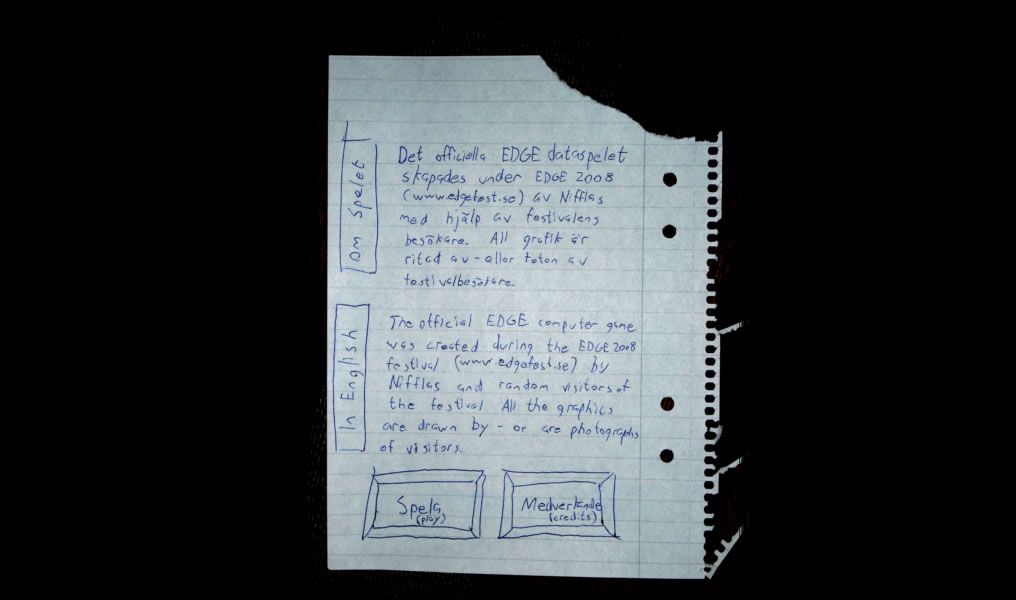 Om Spelet
Det officiella EDGE dataspelet
skapades under EDGE 2008
(www.edgefest.se) av Nifflas
med hjälp av festivalens
besökare. All grafik är
ritad av - eller foton av
festivalbesökare.
In English
The official EDGE computer game
was created during the EDGE 2008
festival (www.edgefest.se) by
Nifflas and random visitors of
the festival. All the graphics
are drawn by - or are photographs
of visitors.
Spela
(play)
Medverkande
(credits)